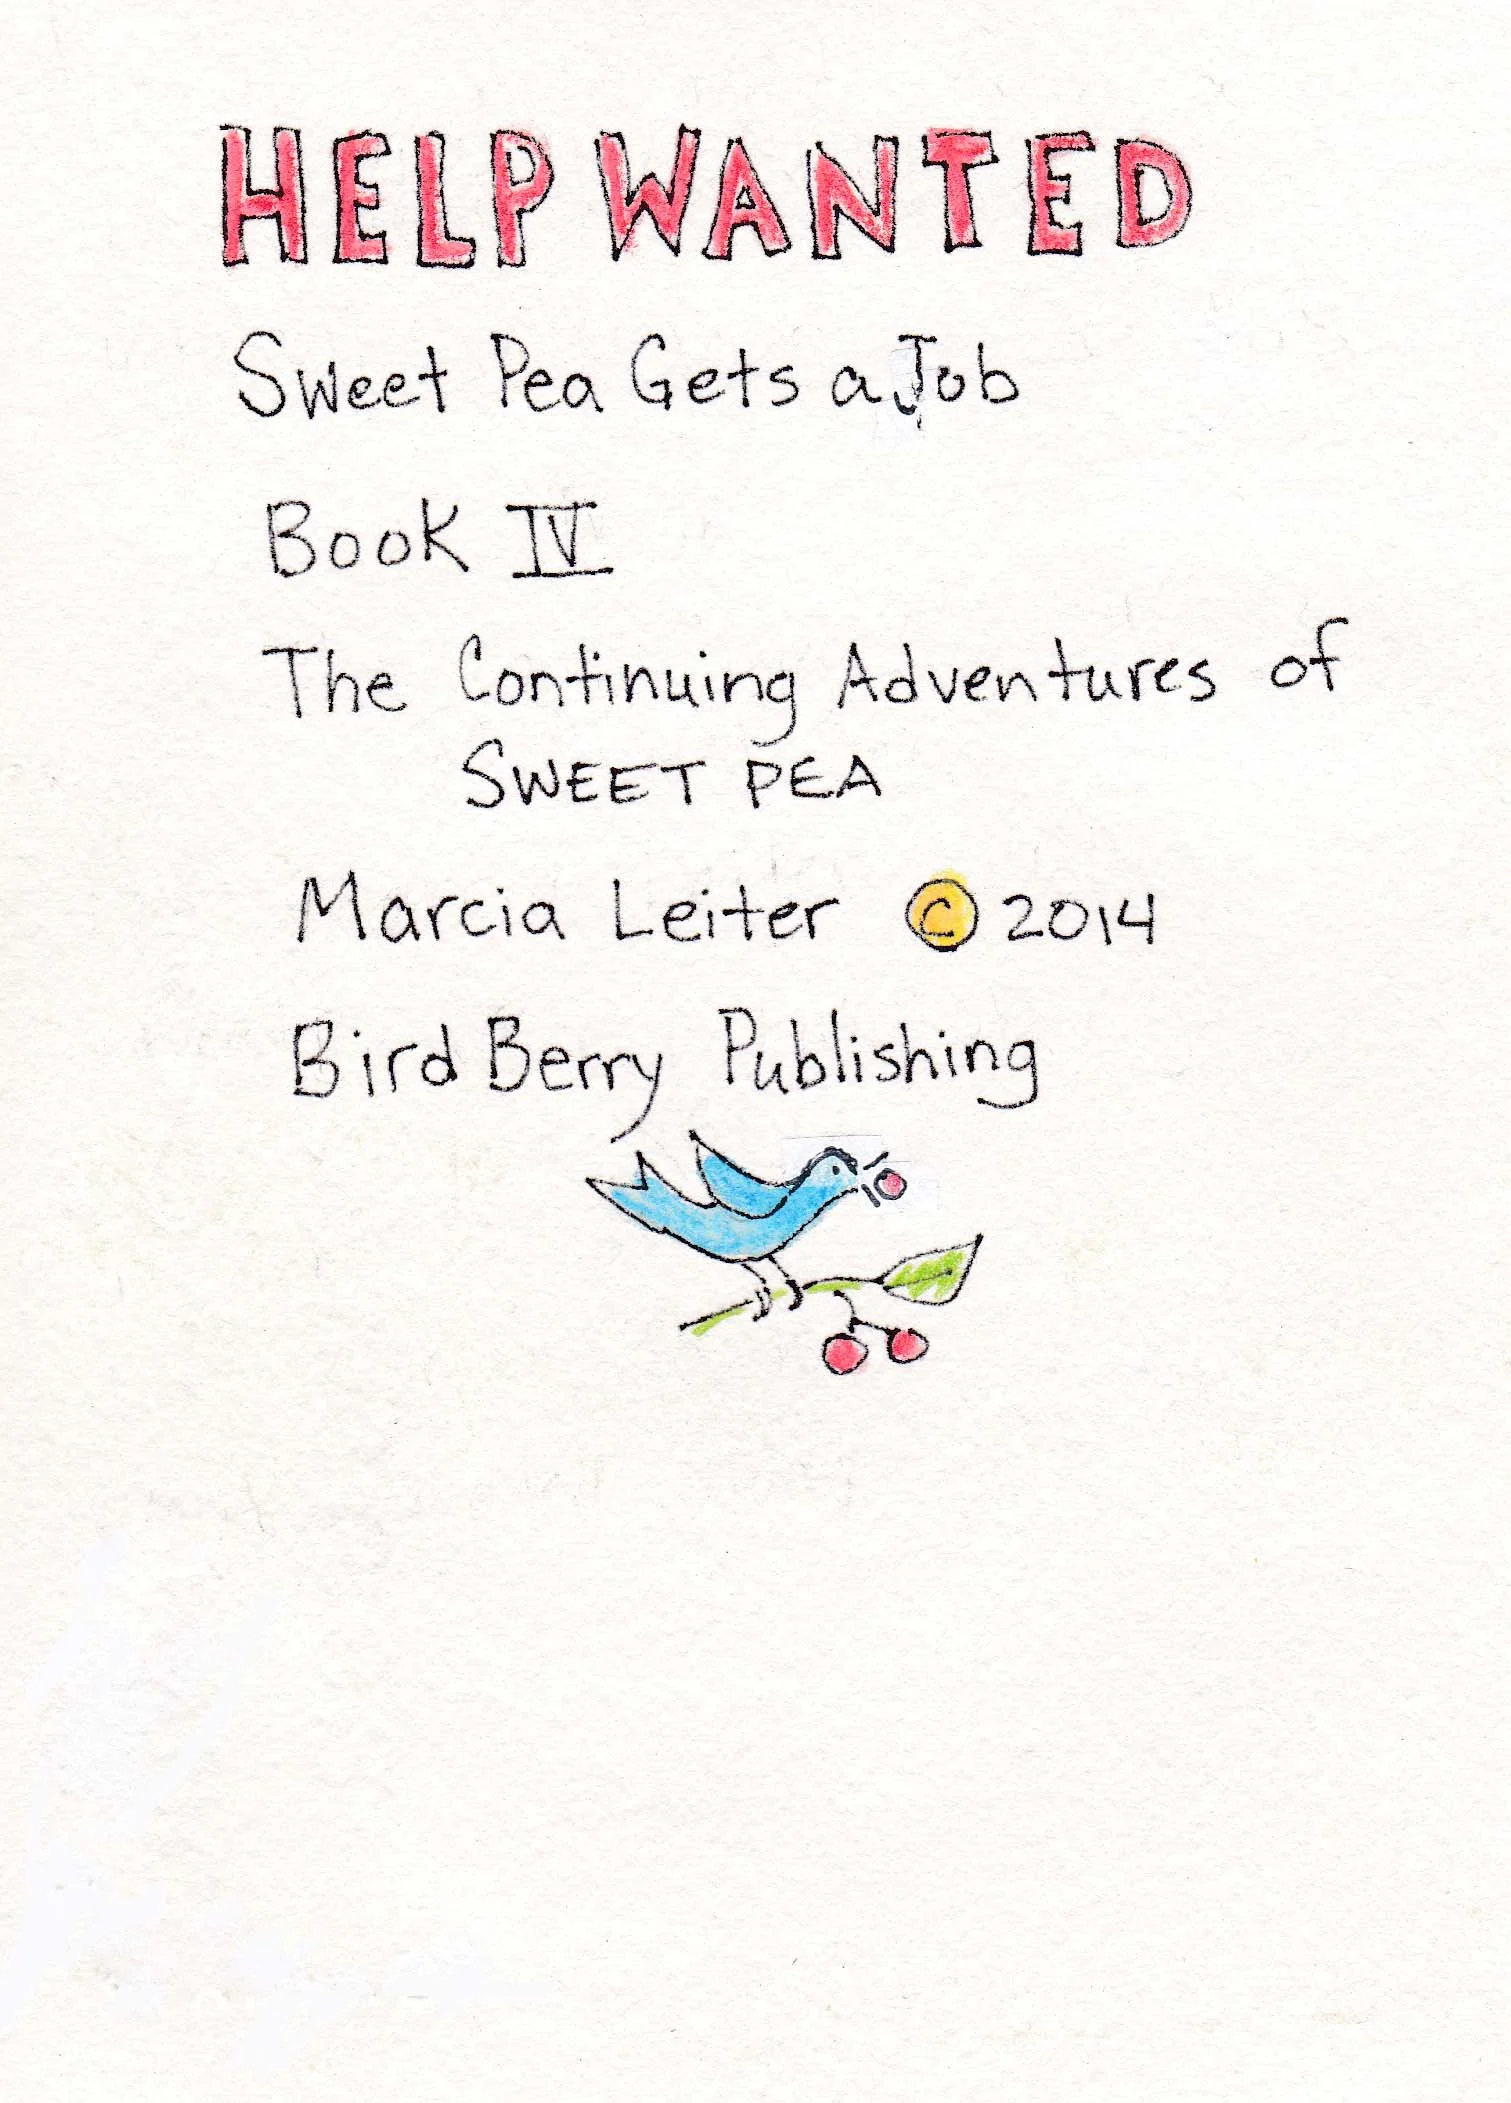 HELP WANTED
Sweet Pea Gets a Job
Book IV
The Continuing Adventures of
SWEET PEA
Marcia Leiter © 2014
Bird Berry Publishing